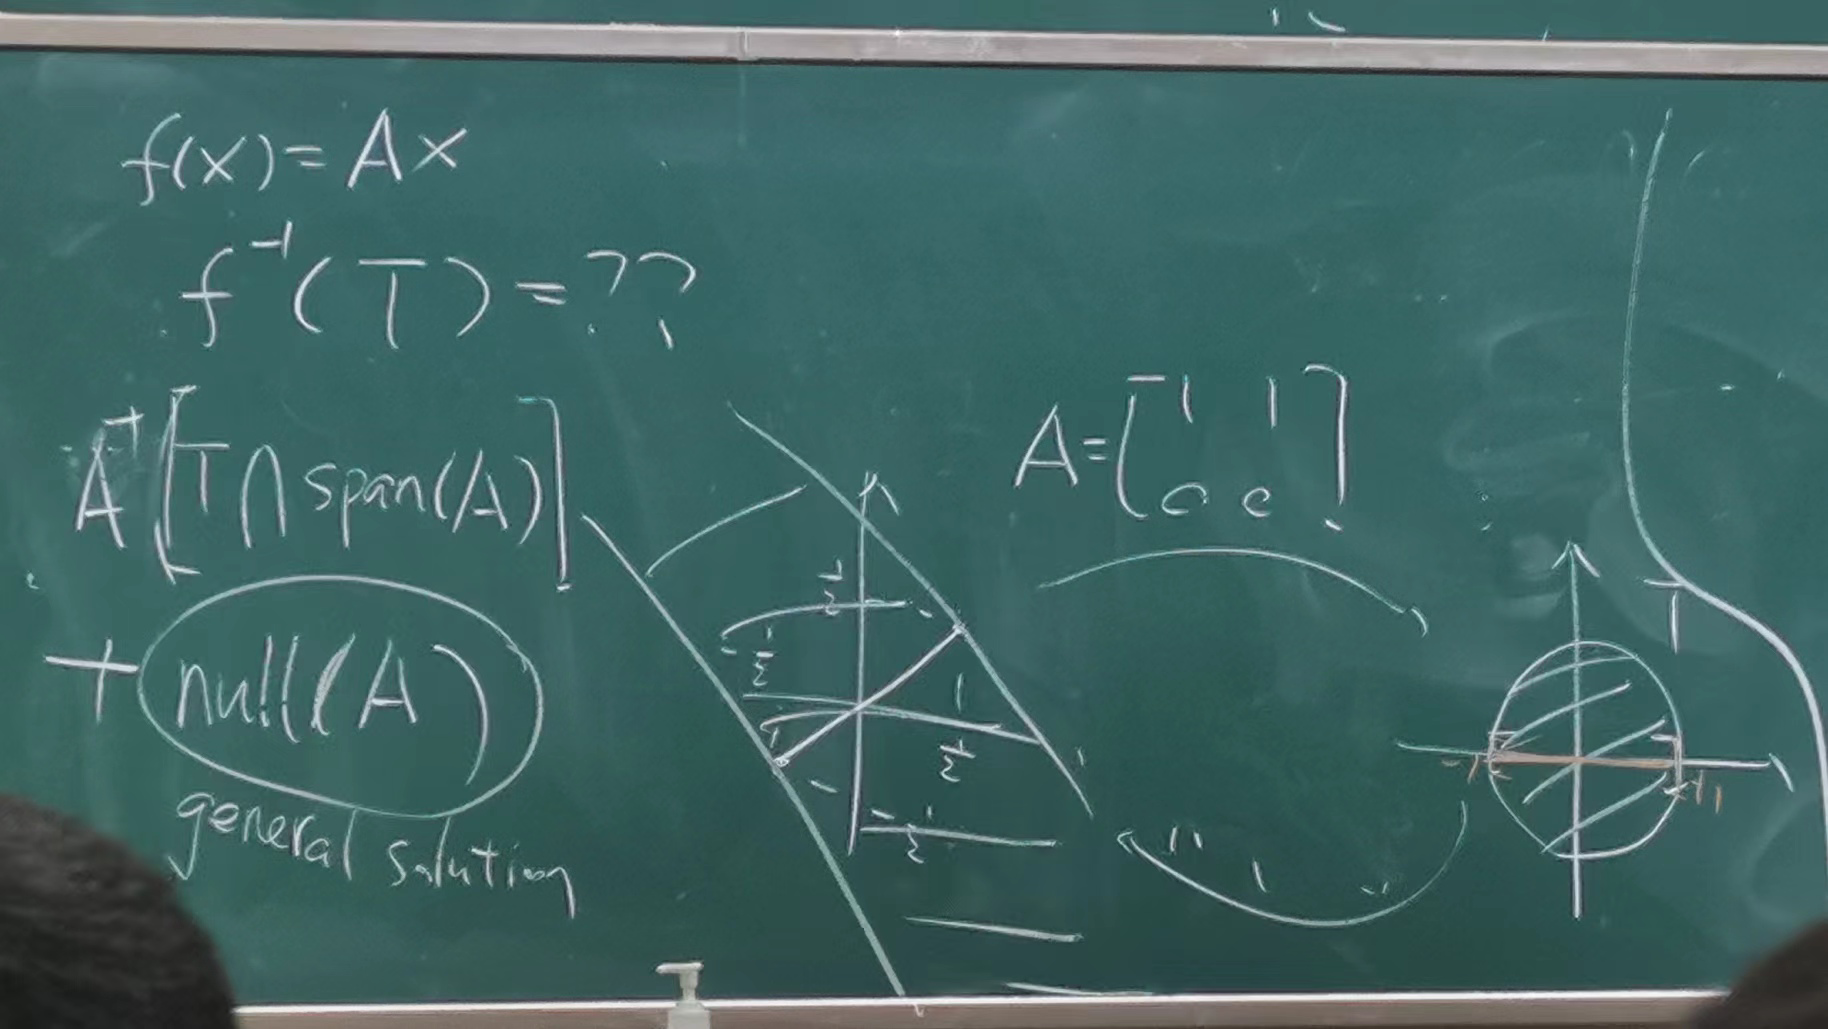 f(x) = Ax
f⁻¹(T) = ??
A⁻¹[T∩span(A)]
+ null(A)
general solution
A = [1 1
0 0]
1/2
1/2
1/2
-1/2
T
-1
+1
"-1"